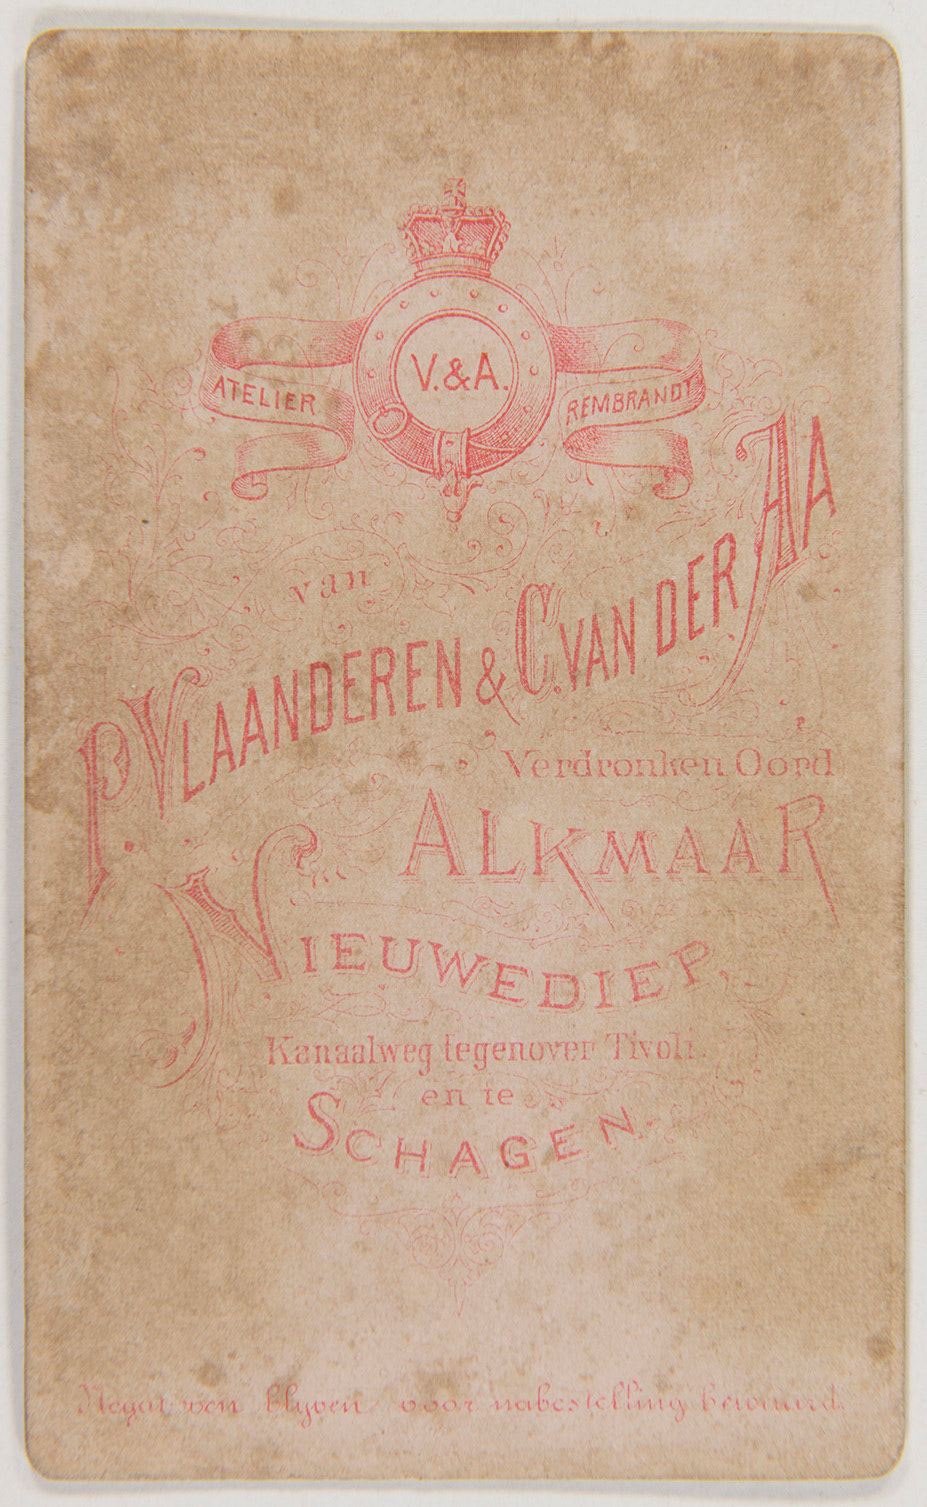 V. & A.
ATELIER REMBRANDT
van
P. VLAANDEREN & C. VAN DER AA
Verdronken Oord
ALKMAAR
NIEUWEDIEP,
Kanaalweg tegenover Tivoli.
en te
SCHAGEN.
Negativen blyven voor nabestelling bewaard.